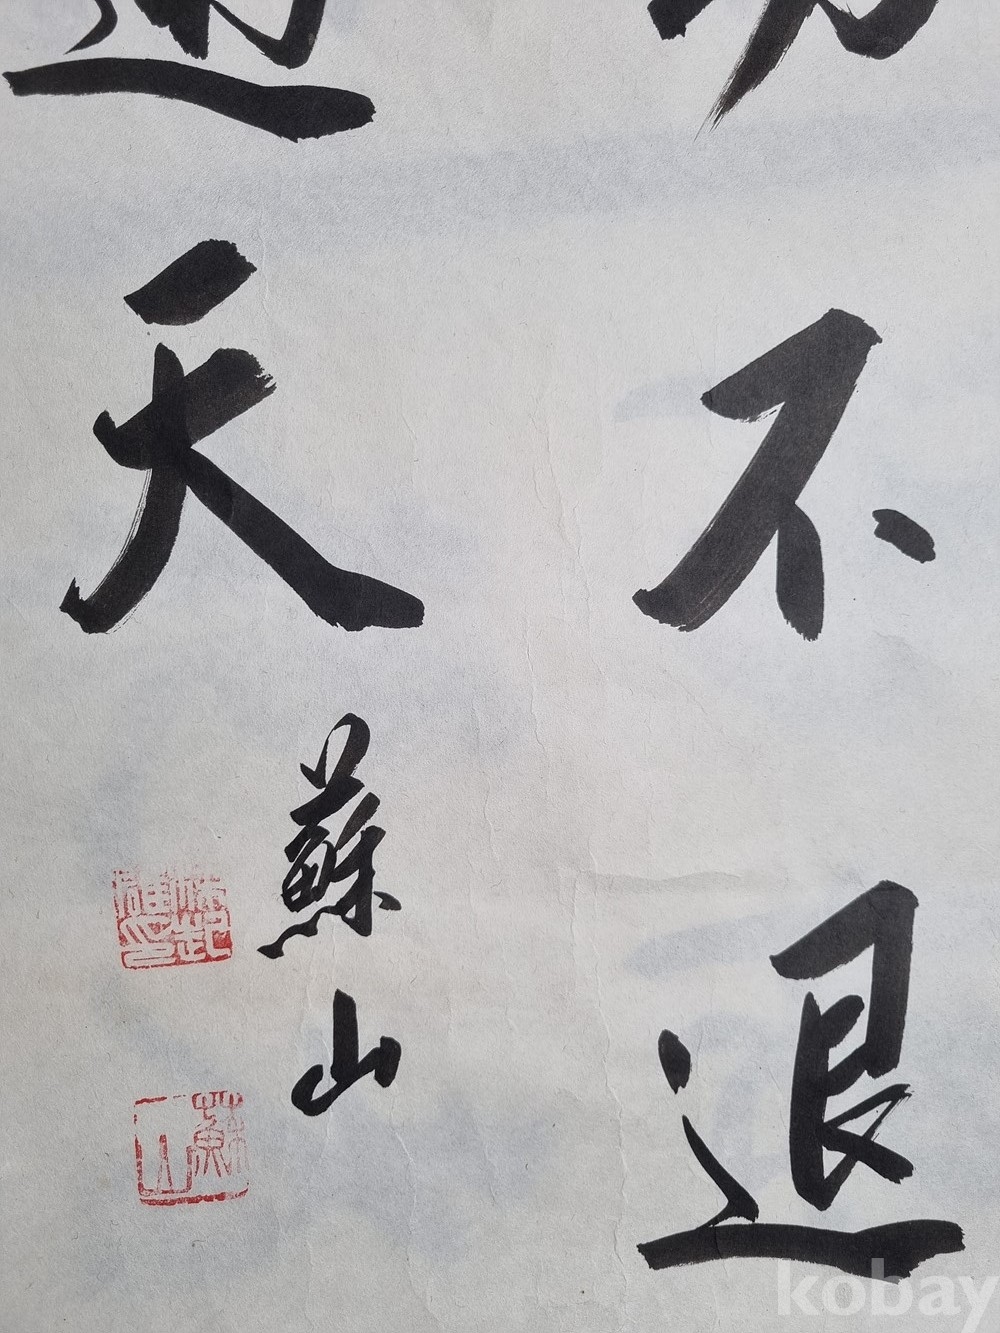 不退
天
蘇山
蘇山
kobay